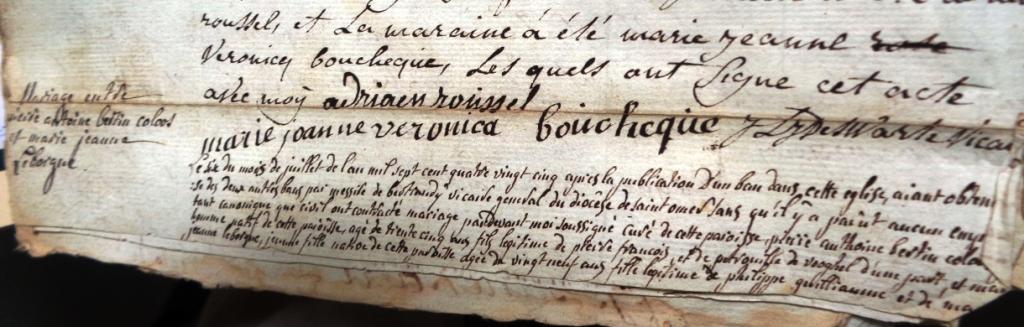 roussel, et La maraine à été marie jeanne
Veronicq bouchecque, Les quels ont Signé cet acte
avec moÿ adriaen roussel
marie joanne veronica bouchcque J Dr De Warle Vicai
Mariage entre
pierre antoine bertin coloos
et marie jeanne
Leborgne
Le six du mois de juillet de l'an mil sept cent quatre vingt cinq après la publication d'un ban dans cette eglise, aiant obten
des deux autres bans par messire de vicaire general du diocese de saint omer sans qu'il y a parût aucun emp
tant canonique que civil ont contracté mariage pardevant moi soussigné Curé de cette paroisse, pierre anthoine bertin colo
homme natif de cette paroisse, agé de trente cinq ans fils legitime de pierre françois, et de petronille de d'une part, et mar
jeanne leborgne, jeune fille native de cette paroisse agée de vingt neuf ans fille legitime de philippe guilliaume et de ma